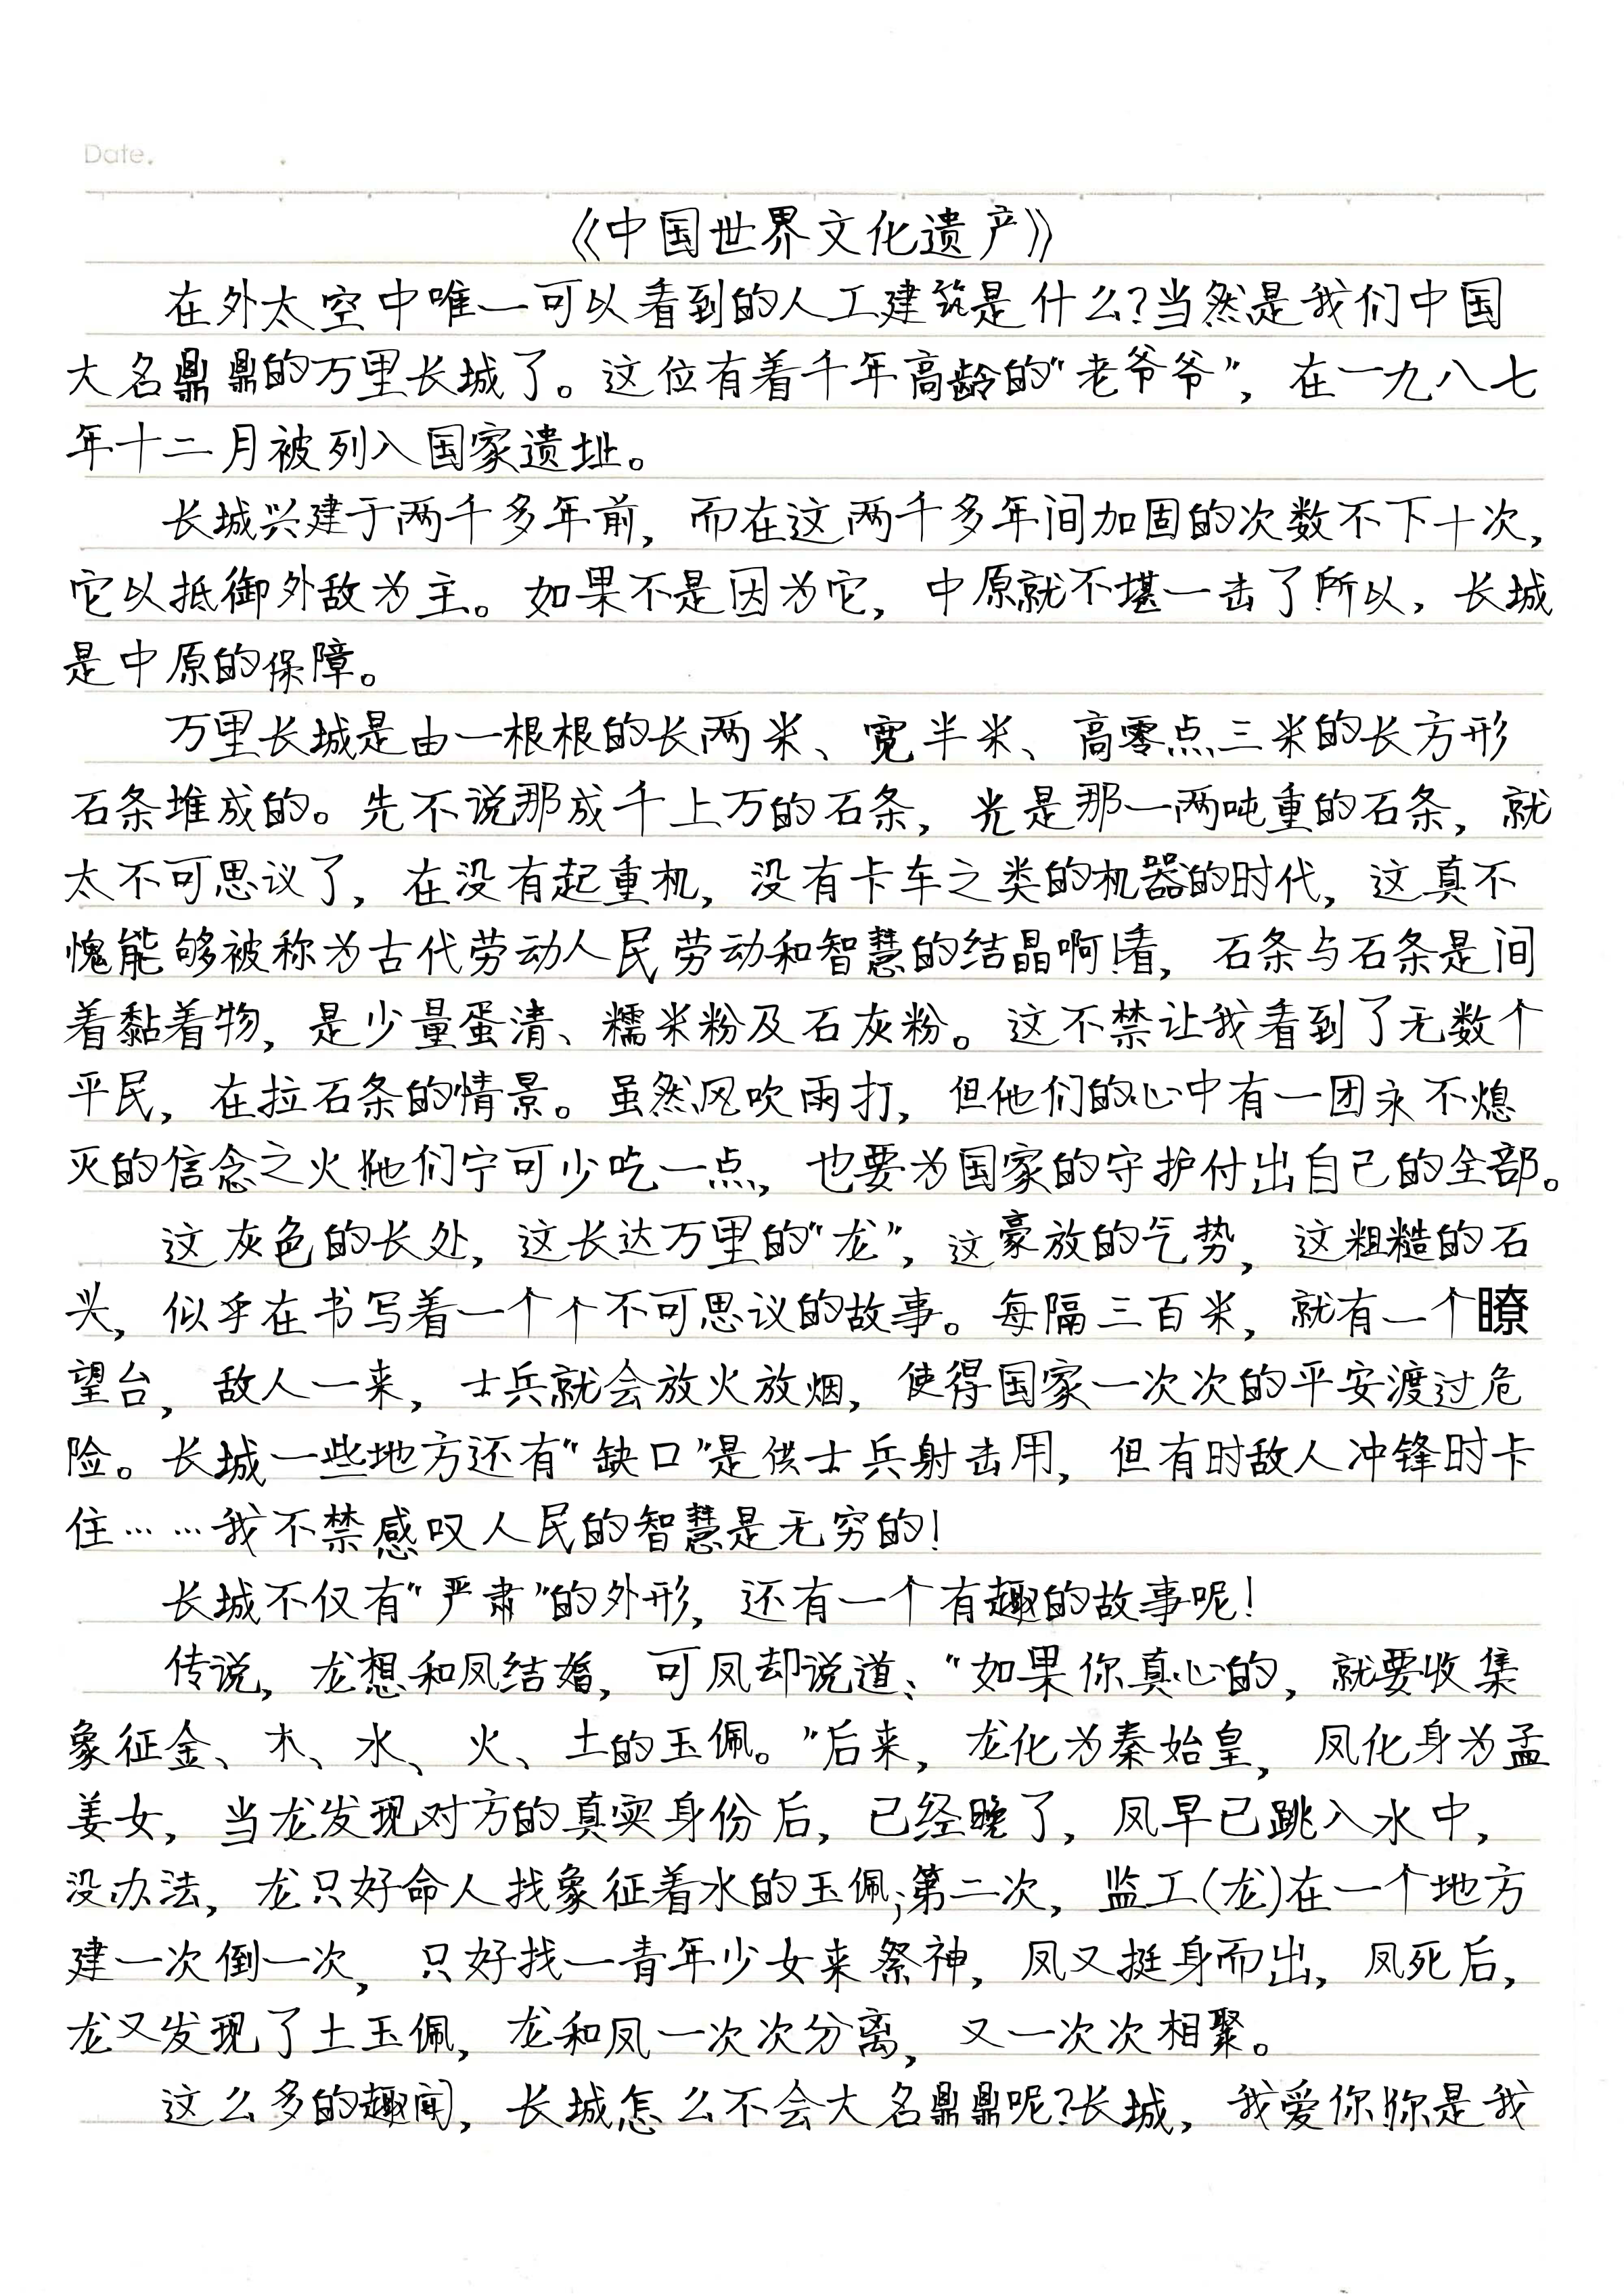 Date.
《中国世界文化遗产》
在外太空中唯一可以看到的人工建筑是什么?当然是我们中国
大名鼎鼎的万里长城了。这位有着千年高龄的“老爷爷”，在一九八七
年十二月被列入国家遗址。
长城兴建于两千多年前，而在这两千多年间加固的次数不下十次，
它以抵御外敌为主。如果不是因为它，中原就不堪一击了!所以，长城
是中原的保障。
万里长城是由一根根的长两米、宽半米、高零点三米的长方形
石条堆成的。先不说那成千上万的石条，光是那一两吨重的石条，就
太不可思议了，在没有起重机，没有卡车之类的机器的时代，这真不
愧能够被称为古代劳动人民劳动和智慧的结晶啊!看，石条与石条是间
着黏着物，是少量蛋清、糯米粉及石灰粉。这不禁让我看到了无数个
平民，在拉石条的情景。虽然风吹雨打，但他们的心中有一团永不熄
灭的信念之火!他们宁可少吃一点，也要为国家的守护付出自己的全部。
这灰色的长处，这长达万里的“龙”，这豪放的气势，这粗糙的石
头，似乎在书写着一个个不可思议的故事。每隔三百米，就有一个瞭
望台，敌人一来，士兵就会放火放烟，使得国家一次次的平安渡过危
险。长城一些地方还有“缺口”是供士兵射击用，但有时敌人冲锋时卡
住……我不禁感叹人民的智慧是无穷的!
长城不仅有“严肃”的外形，还有一个有趣的故事呢!
传说，龙想和凤结婚，可凤却说道、“如果你真心的，就要收集
象征金、木、水、火、土的玉佩。”后来，龙化为秦始皇，凤化身为孟
姜女，当龙发现对方的真实身份后，已经晚了，凤早已跳入水中，
没办法，龙只好命人找象征着水的玉佩;第二次，监工(龙)在一个地方
建一次倒一次，只好找一青年少女来祭神，凤又挺身而出，凤死后，
龙又发现了土玉佩，龙和凤一次次分离，又一次次相聚。
这么多的趣闻，长城怎么不会大名鼎鼎呢?长城，我爱你!你是我